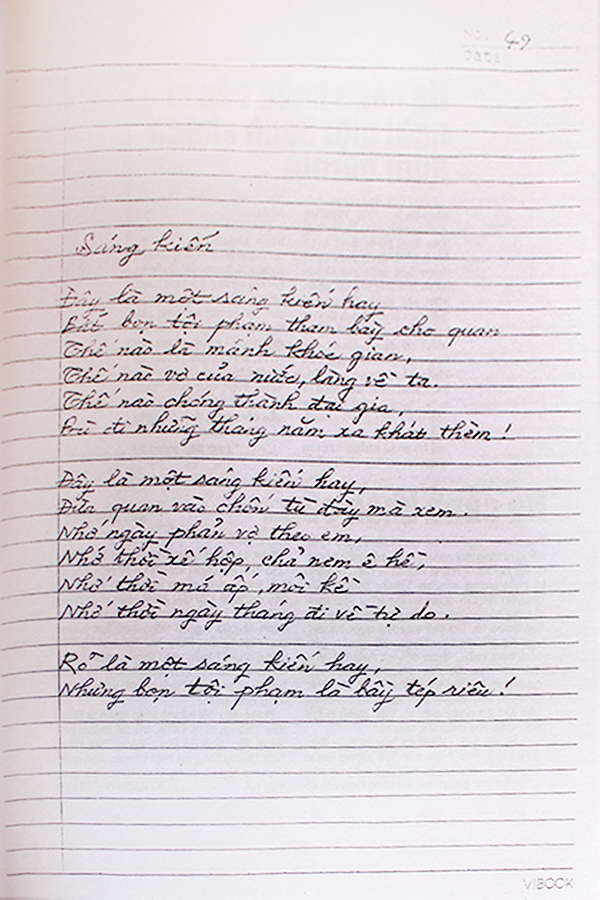 No. 49
Date
Sáng kiến
Đây là một sáng kiến hay
Bắt bọn tội phạm tham bẫy cho quan
Thế nào là mánh khóe gian,
Thế nào vơ của nước, làng về ta.
Thế nào chóng thành đại gia,
Bù đi những tháng năm xa khát thèm!
Đây là một sáng kiến hay,
Đưa quan vào chốn tù đày mà xem.
Nhớ ngày phản vợ theo em,
Nhớ thời xế hộp, chả nem ê hề,
Nhớ thời má ấp, môi kề
Nhớ thời ngày tháng đi về tự do.
Rõ là một sáng kiến hay,
Nhưng bọn tội phạm là bầy tép riêu!
VIBOOK